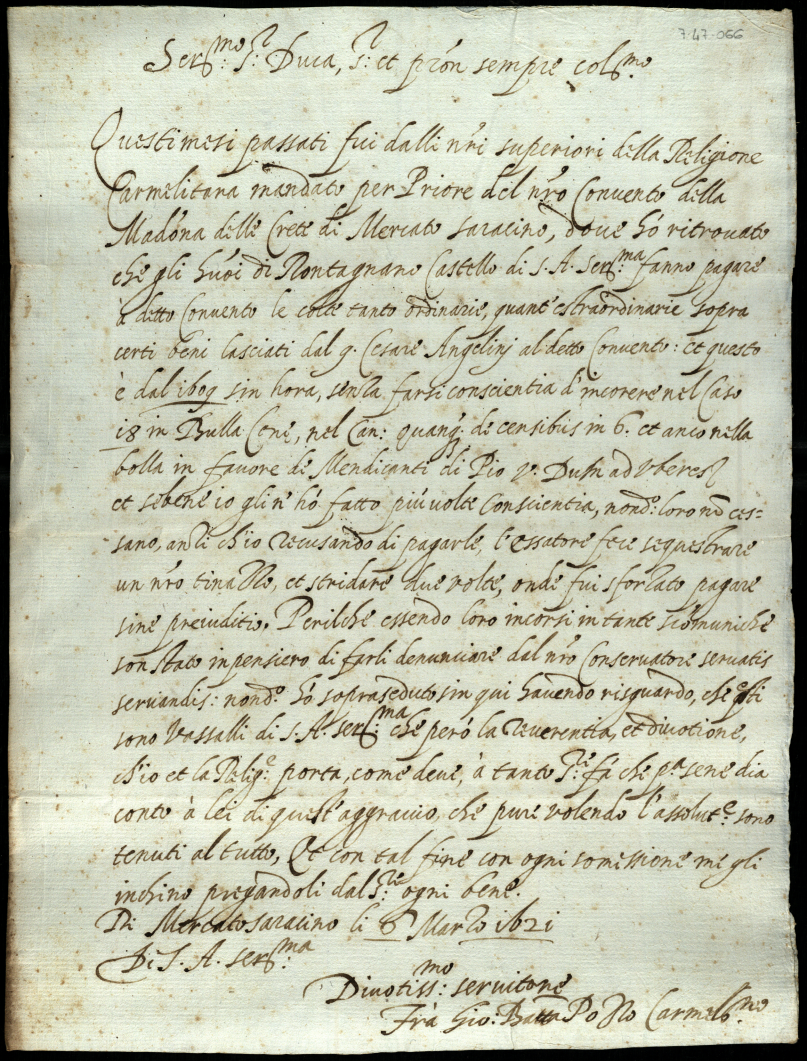 7-47-066
Ser.mo S.r Duca, S.r et prón sempre col.mo
Questi mesi passati fui dalli nri superiori della Religione
Carmelitana mandato per Priore del nro Convento della
Madóna delle Crete di Mercato Saracino, dove hó ritrovato
che gli huói di Montagnano Castello di S. A. Ser.ma fanno pagare
à detto Convento le colte tanto ordinarie, quant'estraordinarie sopra
certi beni lasciati dal q. Cesare Angelinj al detto Convento: et questo
è dal 1609 sin hora, senza farsi conscientia d'incorere nel Caso
18 in Bulla Cene, nel Can: quanq. de censibus in 6. et anco nella
bolla in favore de Mendicanti di Pio V. Dum ad Uberes
et sebene io gli n' hó fatto più volte conscientia, nond.o loro nō ces=
sano, anzi ch'io recusando di pagarle, l'essatore fece sequestrare
un nro tinazzo, et stridare due volte, onde fui sforzato pagare
sine preiuditio. Perilche essendo loro incorsi in tante scomuniche
son stato in pensiero di farli denunciare dal nro Conservatore servatis
servandis: nond.o hó sopraseduto sin qui havendo risguardo, che qsti
sono Vassalli di S. A. Ser.ma che peró la reverentia, et divotione,
ch'io et la Relig.e porta, come deve, à tanto P.re fa che p.a sene dia
conto à lei di quest'aggravio, che pure volendo l'assolut.e sono
tenuti al tutto, Et con tal fine con ogni somissione me gli
inchino pregandoli dal S.re ogni bene.
Di Mercato Saracino li 8 Marzo 1621
Di S. A. Ser.ma
Divotiss.mo servitore
Frà Gio: Batta Pozzo Carmel.no